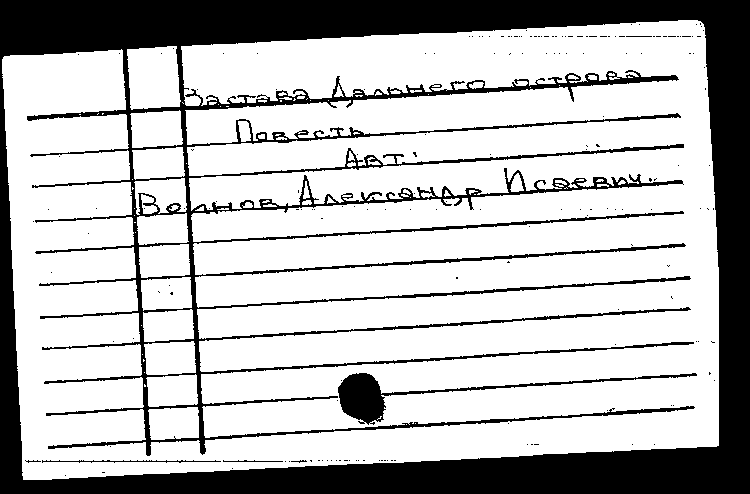 Застава Дальнего острова
Повесть
Авт:
Воинов, Александр Исаевич.